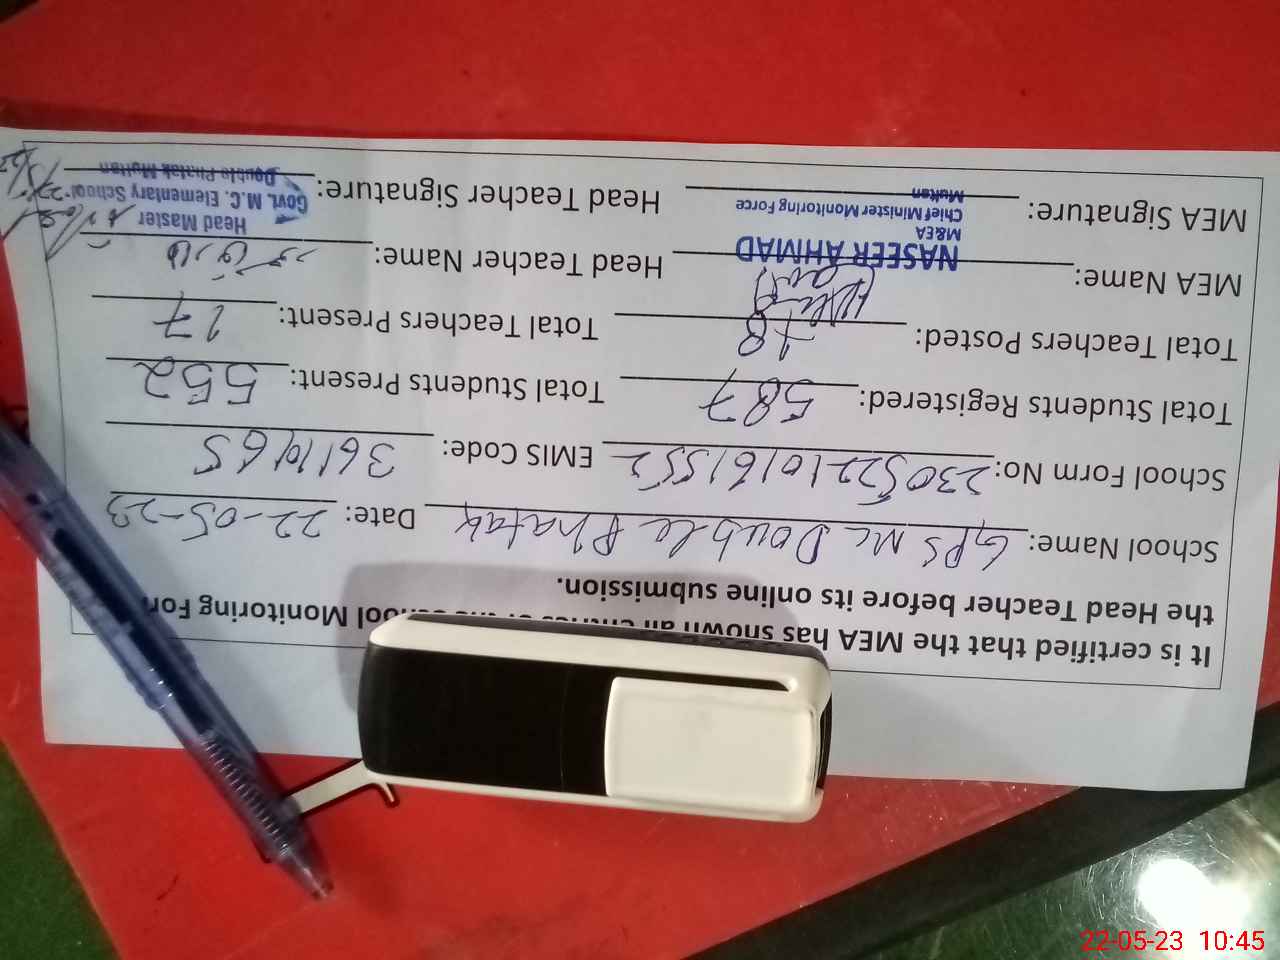 It is certified that the MEA has shown all entries of the School Monitoring For
the Head Teacher before its online submission.
School Name: GPS MC Double Phatak Date: 22-05-23
School Form No: EMIS Code: 36110165
Total Students Registered: 587 Total Students Present: 552
Total Teachers Posted: 18 Total Teachers Present: 17
MEA Name: Head Teacher Name:
NASEER AHMAD
M&EA
Chief Minister Monitoring Force
Multan
MEA Signature: Head Teacher Signature:
Head Master
Govt. M.C. Elementary School
Double Phatak Multan
22-05-23 10:45